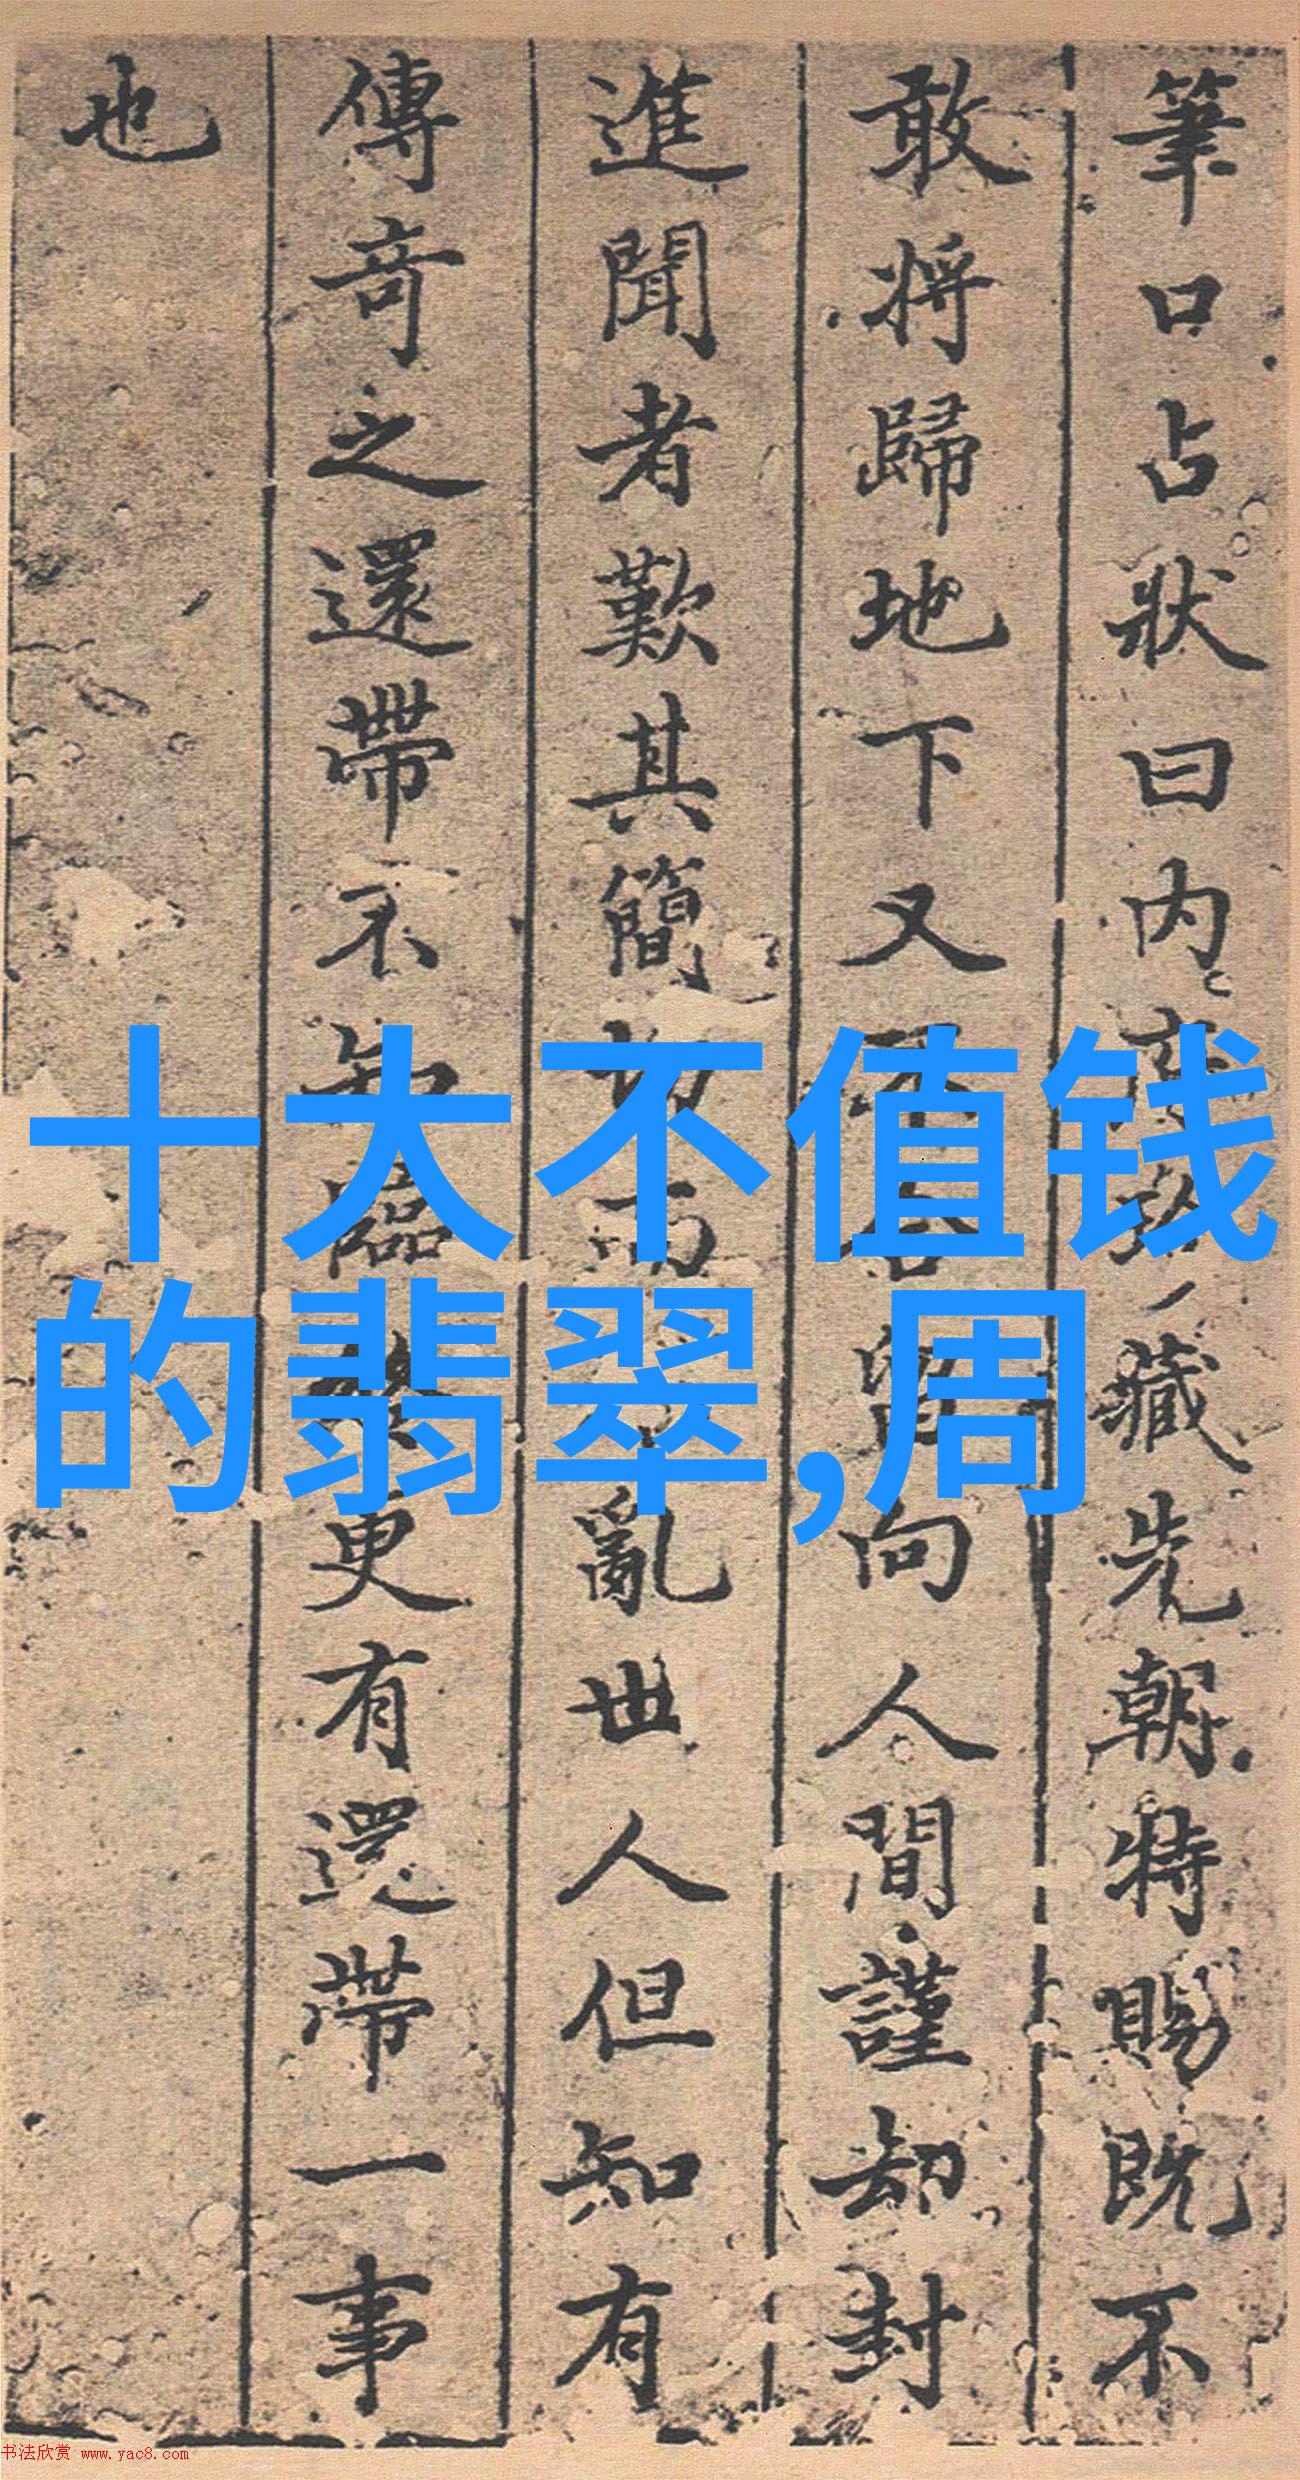 筆口占狀曰内藏先朝特賜既不
敢將歸地下又不合留向人間謹却封
進聞者歎其簡切而不亂世人但知有
傳奇之還帶不知臨終更有還帶一事
也
十大不值钱
的翡翠,周
书法欣赏 www.yac8.com